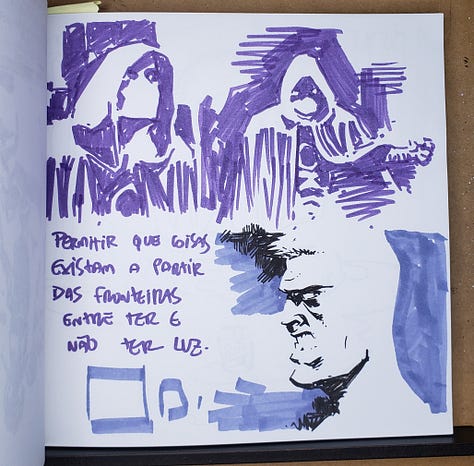 PERMITIR QUE COISAS
EXISTAM A PARTIR
DAS FRONTEIRAS
ENTRE TER E
NÃO TER LUZ.